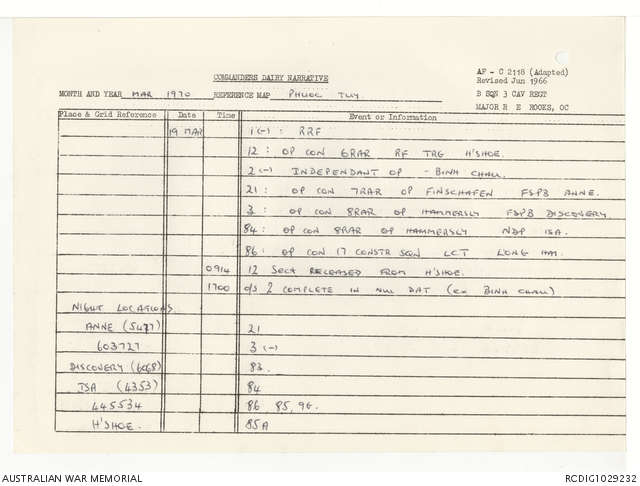 COMMANDERS DAIRY NARRATIVE
AF - C 2118 (Adapted)
Revised Jun 1966
MONTH AND YEAR MAR 1970 REFERENCE MAP PHUOC TUY. B SQN 3 CAV REGT
MAJOR R E ROOKS, OC
Place & Grid Reference Date Time Event or Information
19 MAR 1 (-) : RRF
12 : OP CON 6RAR RF TRG H'SHOE.
2 (-) INDEPENDANT OP - BINH CHAU.
21 : OP CON 7RAR OP FINSCHAFEN FSPB ANNE.
3 : OP CON 8RAR OP HAMMERSLY FSPB DISCOVERY
84 : OP CON 8RAR OP HAMMERSLY NDP ISA.
86 : OP CON 17 CONSTR SQN LCT LONG HAI.
0914 12 SECT RELEASED FROM H'SHOE.
1700 C/S 2 COMPLETE IN NUI DAT (ex BINH CHAU)
NIGHT LOCATIONS
ANNE (5477) 21
603727 3 (-)
DISCOVERY (6068) 83.
ISA (4353) 84
445534 86, 85, 9E.
H'SHOE. 85A
AUSTRALIAN WAR MEMORIAL RCDIG1029232